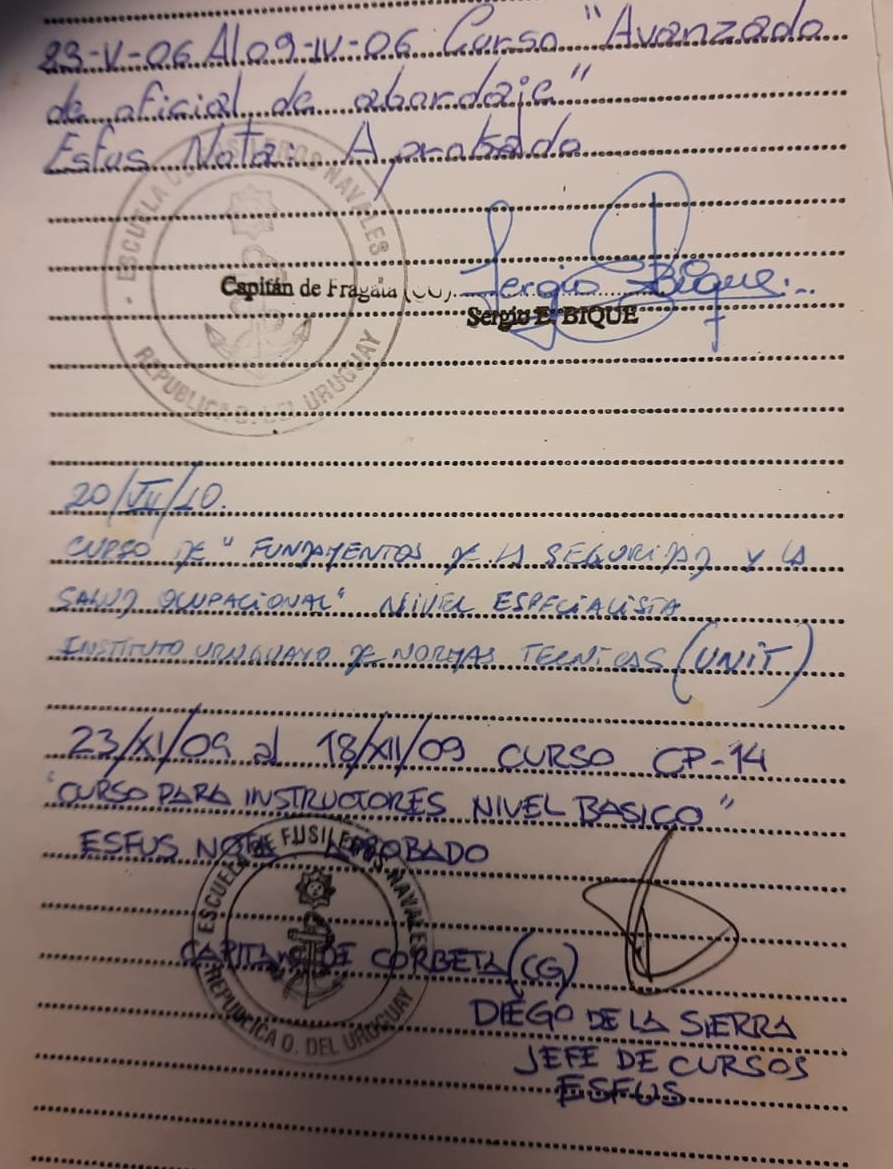 23-V-06 Al 09-IV-06 Curso "Avanzado
de oficial de abordaje"
Esfus Nota: Aprobado
ESCUELA DE FUSILEROS NAVALES
REPUBLICA O. DEL URUGUAY
Capitán de Fragata (CG)
Sergio Bique
Sergio E. BIQUE
20/VII/10.
CURSO DE "FUNDAMENTOS DE LA SEGURIDAD Y LA
SALUD OCUPACIONAL" NIVEL ESPECIALISTA
INSTITUTO URUGUAYO DE NORMAS TECNICAS (UNIT)
23/XI/09 al 18/XII/09 CURSO CP-14
"CURSO PARA INSTRUCTORES NIVEL BASICO"
ESFUS NOTA APROBADO
ESCUELA DE FUSILEROS NAVALES
REPUBLICA O. DEL URUGUAY
CAPITAN DE CORBETA (CG)
DIEGO DE LA SIERRA
JEFE DE CURSOS
ESFUS